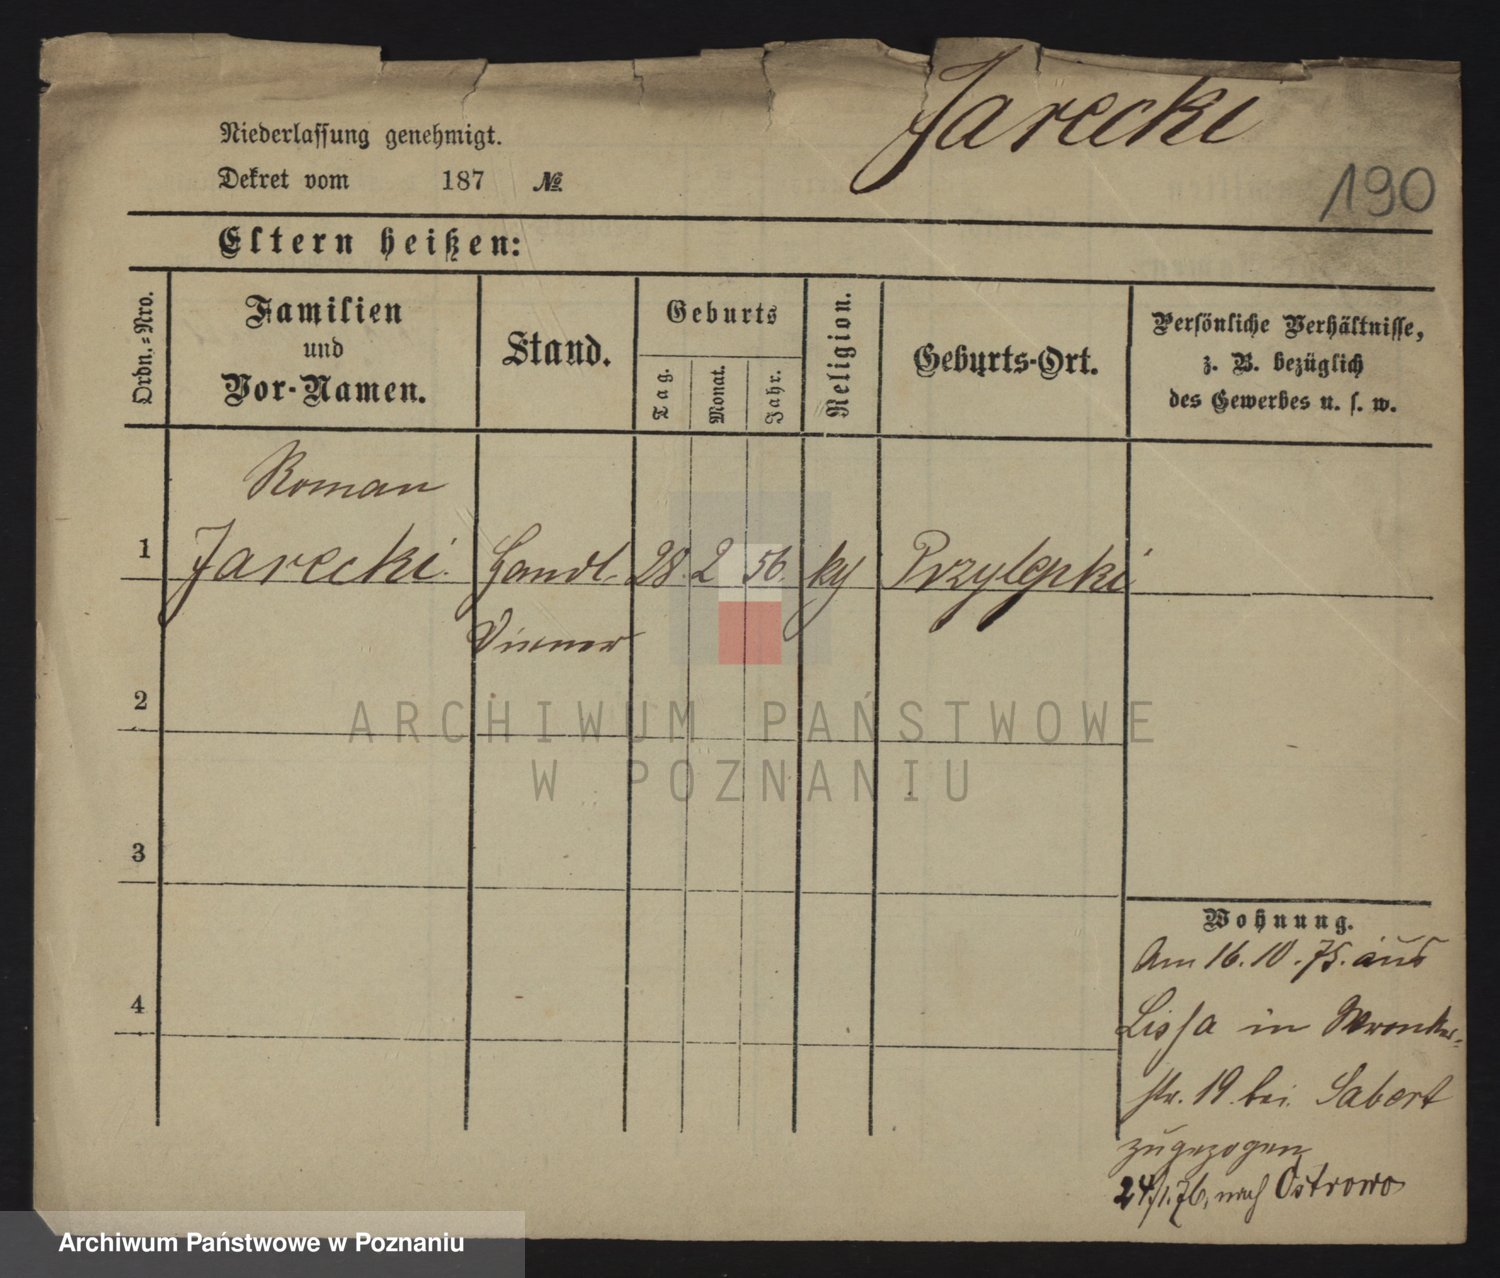 Jarecki
190
Niederlassung genehmigt.
Dekret vom 187 №
Eltern heißen:
Ordn.=Nro.
Familien
und
Vor-Namen.
Stand.
Geburts
Tag.
Monat.
Jahr.
Religion.
Geburts-Ort.
Persönliche Verhältnisse,
z. B. bezüglich
des Gewerbes u. s. w.
Roman
1 Jarecki. Handl. 28. 2 56. ky Przylepki
Diener
2
3
4
Wohnung.
Am 16.10.75. aus
Lissa in Wronker-
str. 19. bei Sabert
zugezogen
24/1.76, nach Ostrowo
ARCHIWUM PAŃSTWOWE
W POZNANIU
Archiwum Państwowe w Poznaniu